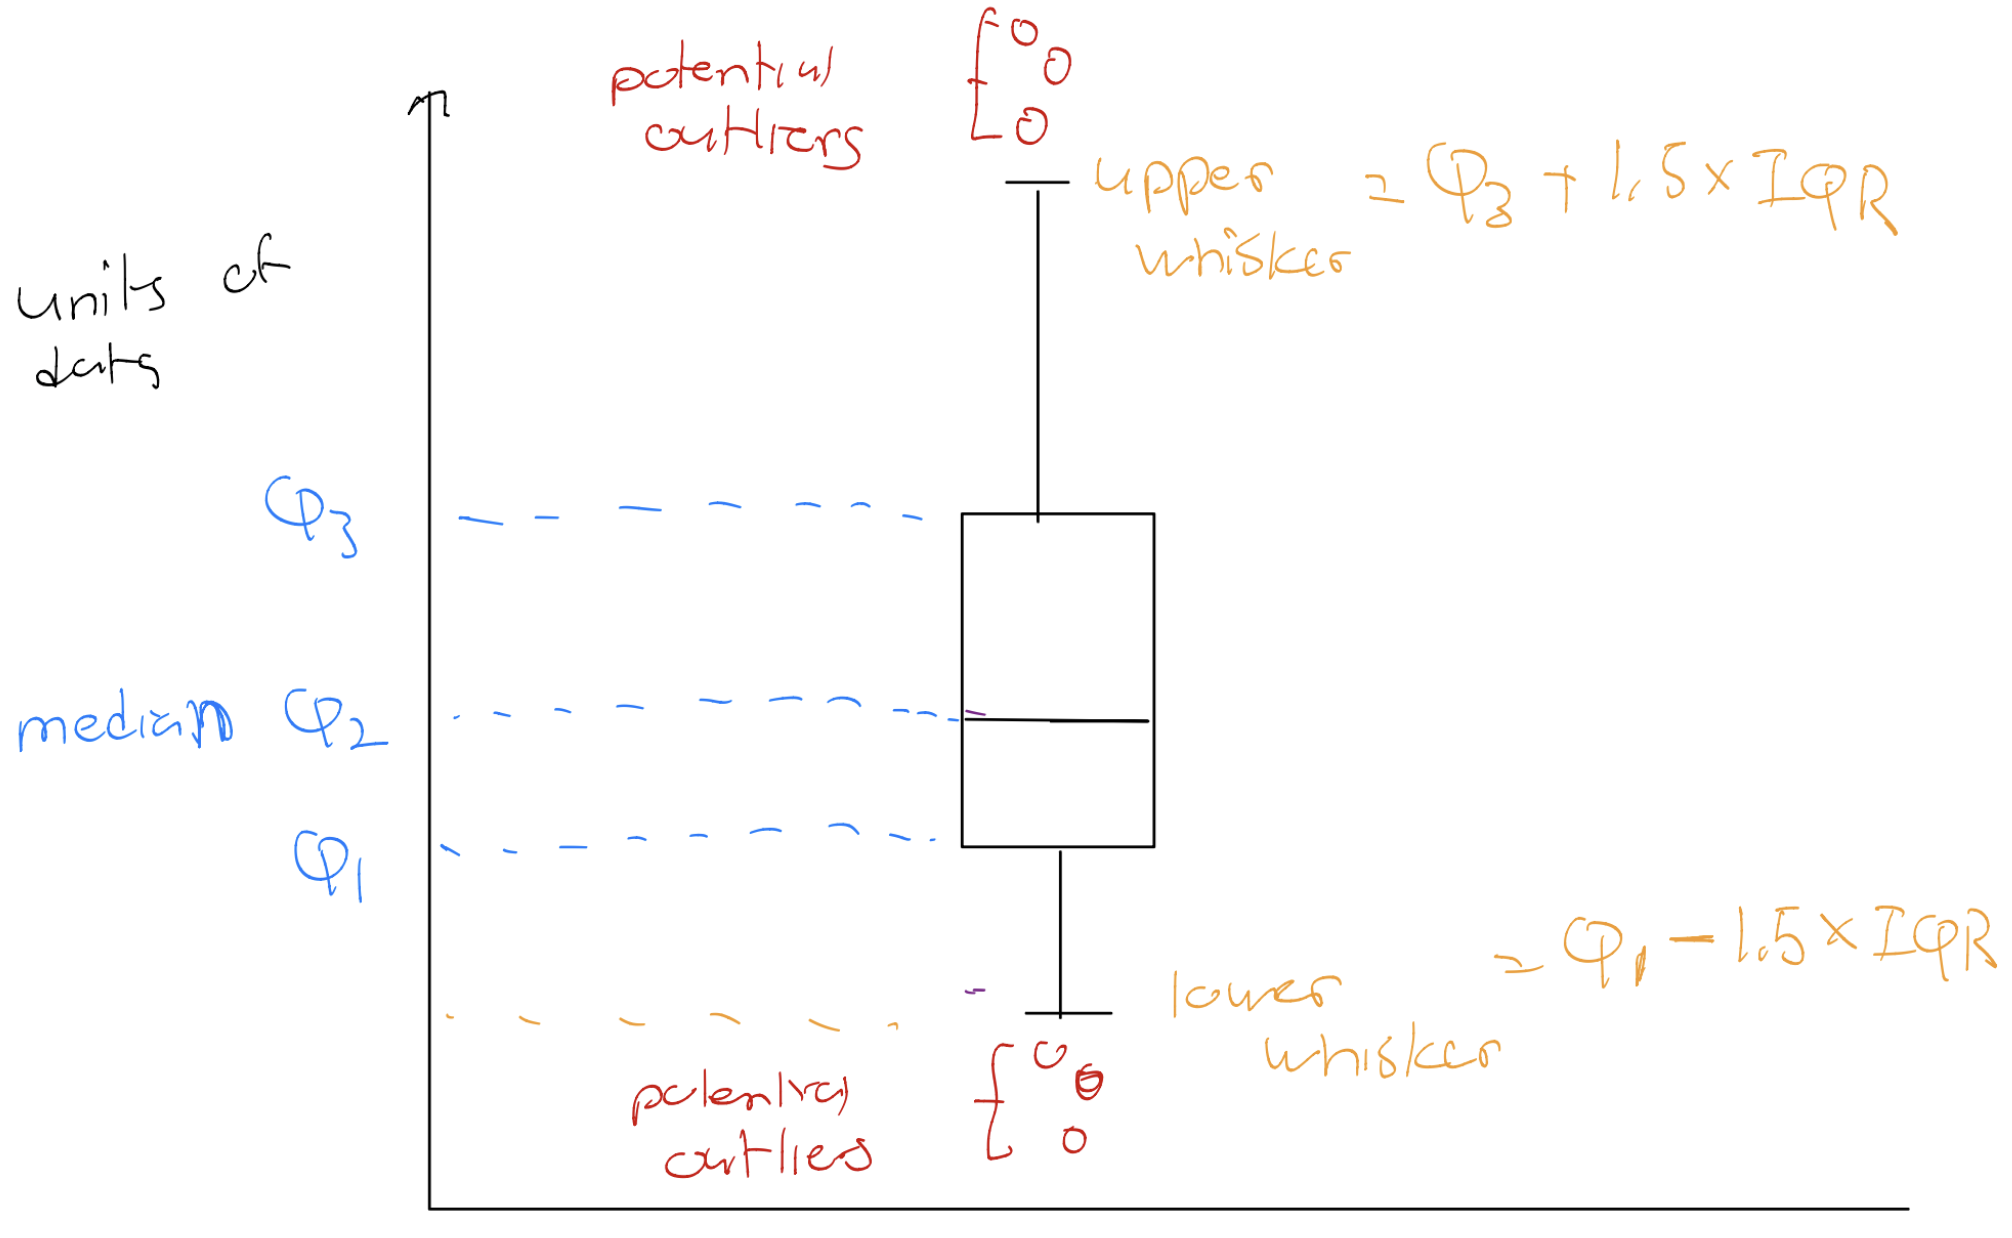 potential
outliers
upper
whisker
= Q3 + 1.5 × IQR
units of
data
Q3
median Q2
Q1
lower
whisker
= Q1 - 1.5 × IQR
potential
outliers